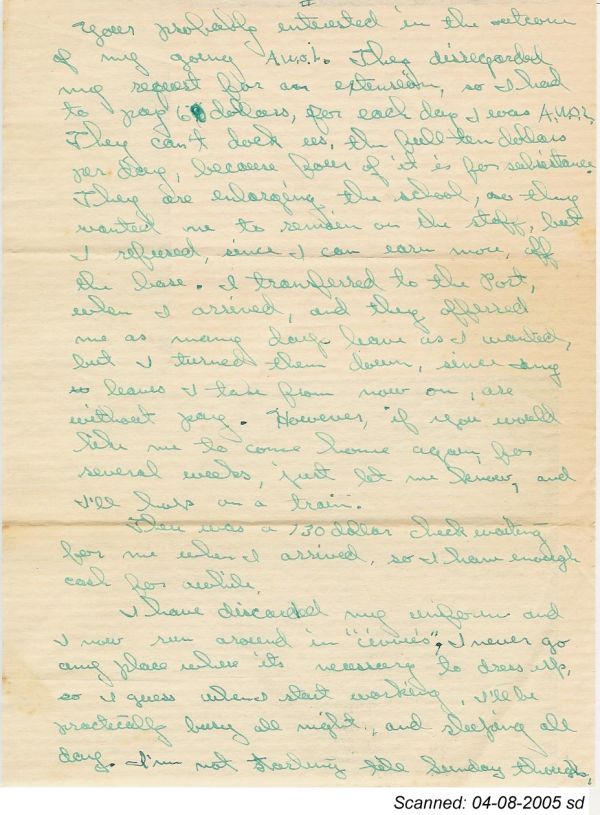 II
Your probably interested in the outcome
of my going A.W.O.L. They disregarded
my request for an extension, so I had
to pay 6 dollars, for each day I was A.W.O.L.
They can't dock us, the full ten dollars
per day, because four of it is for subsistance.
They are enlarging the school, so they
wanted me to remain on the staff, but
I refused, since I can earn more, off
the base. I transferred to the Port,
when I arrived, and they offerred
me as many days leave as I wanted,
but I turned them down, since any
leaves I take from now on, are
without pay. However, if you would
like me to come home again, for
several weeks, just let me know, and
I'll hop on a train.
There was a 130 dollar check waiting
for me when I arrived, so I have enough
cash for awhile.
I have discarded my uniform and
I now run around in "civvies", I never go
any place where it's necessary to dress up,
so I guess when I start working, I'll be
practically busy all night, and sleeping all
day. I'm not starting till Sunday though.
Scanned: 04-08-2005 sd